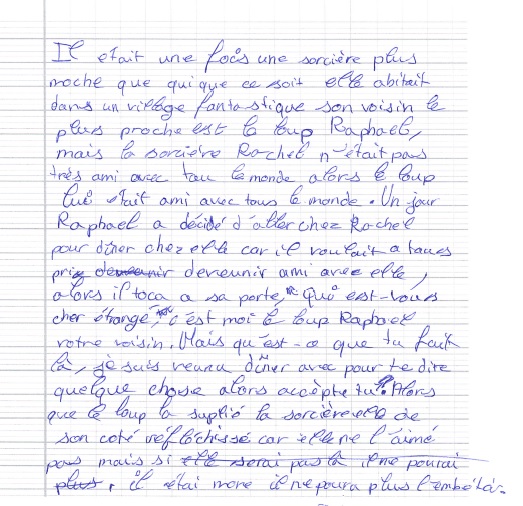 Il etait une fois une sorcière plus
moche que quique ce soit elle abitait
dans un village fantastique son voisin le
plus proche est le loup Raphael,
mais la sorcière Rachel n'était pas
très ami avec tou le monde alors le loup
lui était ami avec tous le monde. Un jour
Raphael a décidé d'aller chez Rachel
pour dîner chez elle car il voulait a toues
prix devenir ami avec elle,
alors il toca a sa porte, " Qui est-vous
cher étrangé, " c'est moi le loup Raphael
votre voisin. Mais qu'est-ce que tu fait
là, je suis venu dîner avec pour te dire
quelque chose alors accèpte tu ". Alors
que le loup la suplié la sorcière elle de
son coté réfléchissé car elle ne l'aimé
pas mais si elle serai pas là il ne pourai
plus, il étai more il ne poura plus l'embétá.